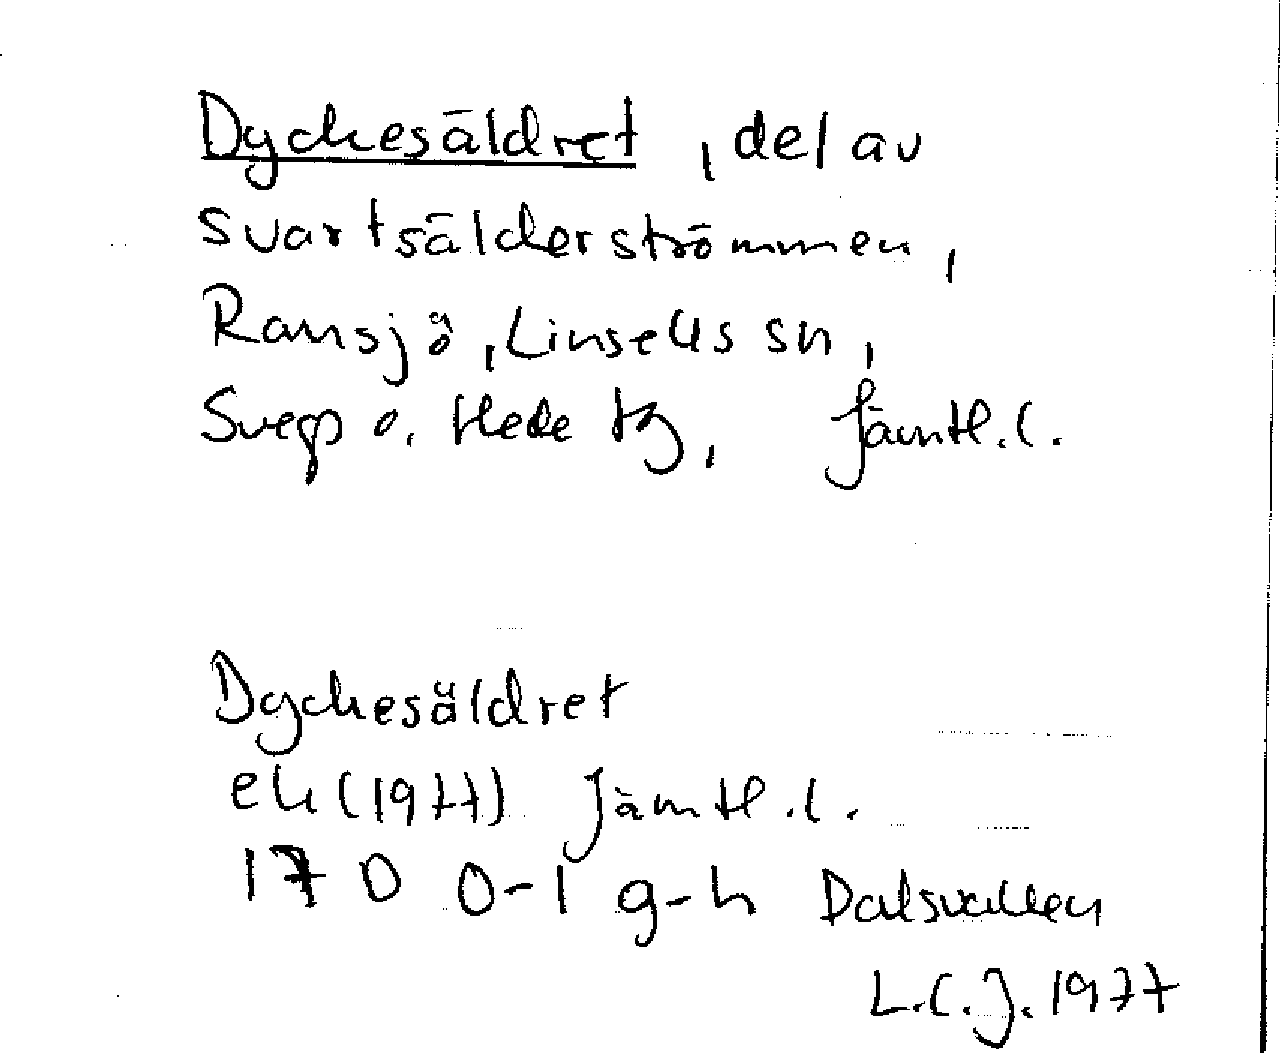 Dyckesäldret, del av
svartsälderströmmen,
Ransjö, Linsells sn,
Svegs o. Hede tg, Jämtl. l.
Dyckesäldret
ek (1977) Jämtl. l.
17 D 0-1 g-h Dalsvallen
L.C.J. 1977